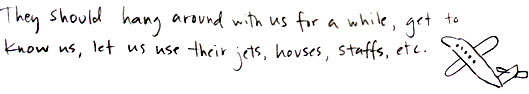 They should hang around with us for a while, get to
know us, let us use their jets, houses, staffs, etc.